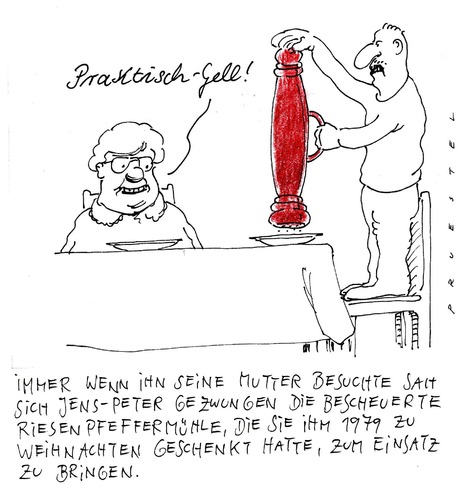 Praktisch-Gell!
PRUESTEL
IMMER WENN IHN SEINE MUTTER BESUCHTE SAH
SICH JENS-PETER GEZWUNGEN DIE BESCHEUERTE
RIESENPFEFFERMÜHLE, DIE SIE IHM 1979 ZU
WEIHNACHTEN GESCHENKT HATTE, ZUM EINSATZ
ZU BRINGEN.